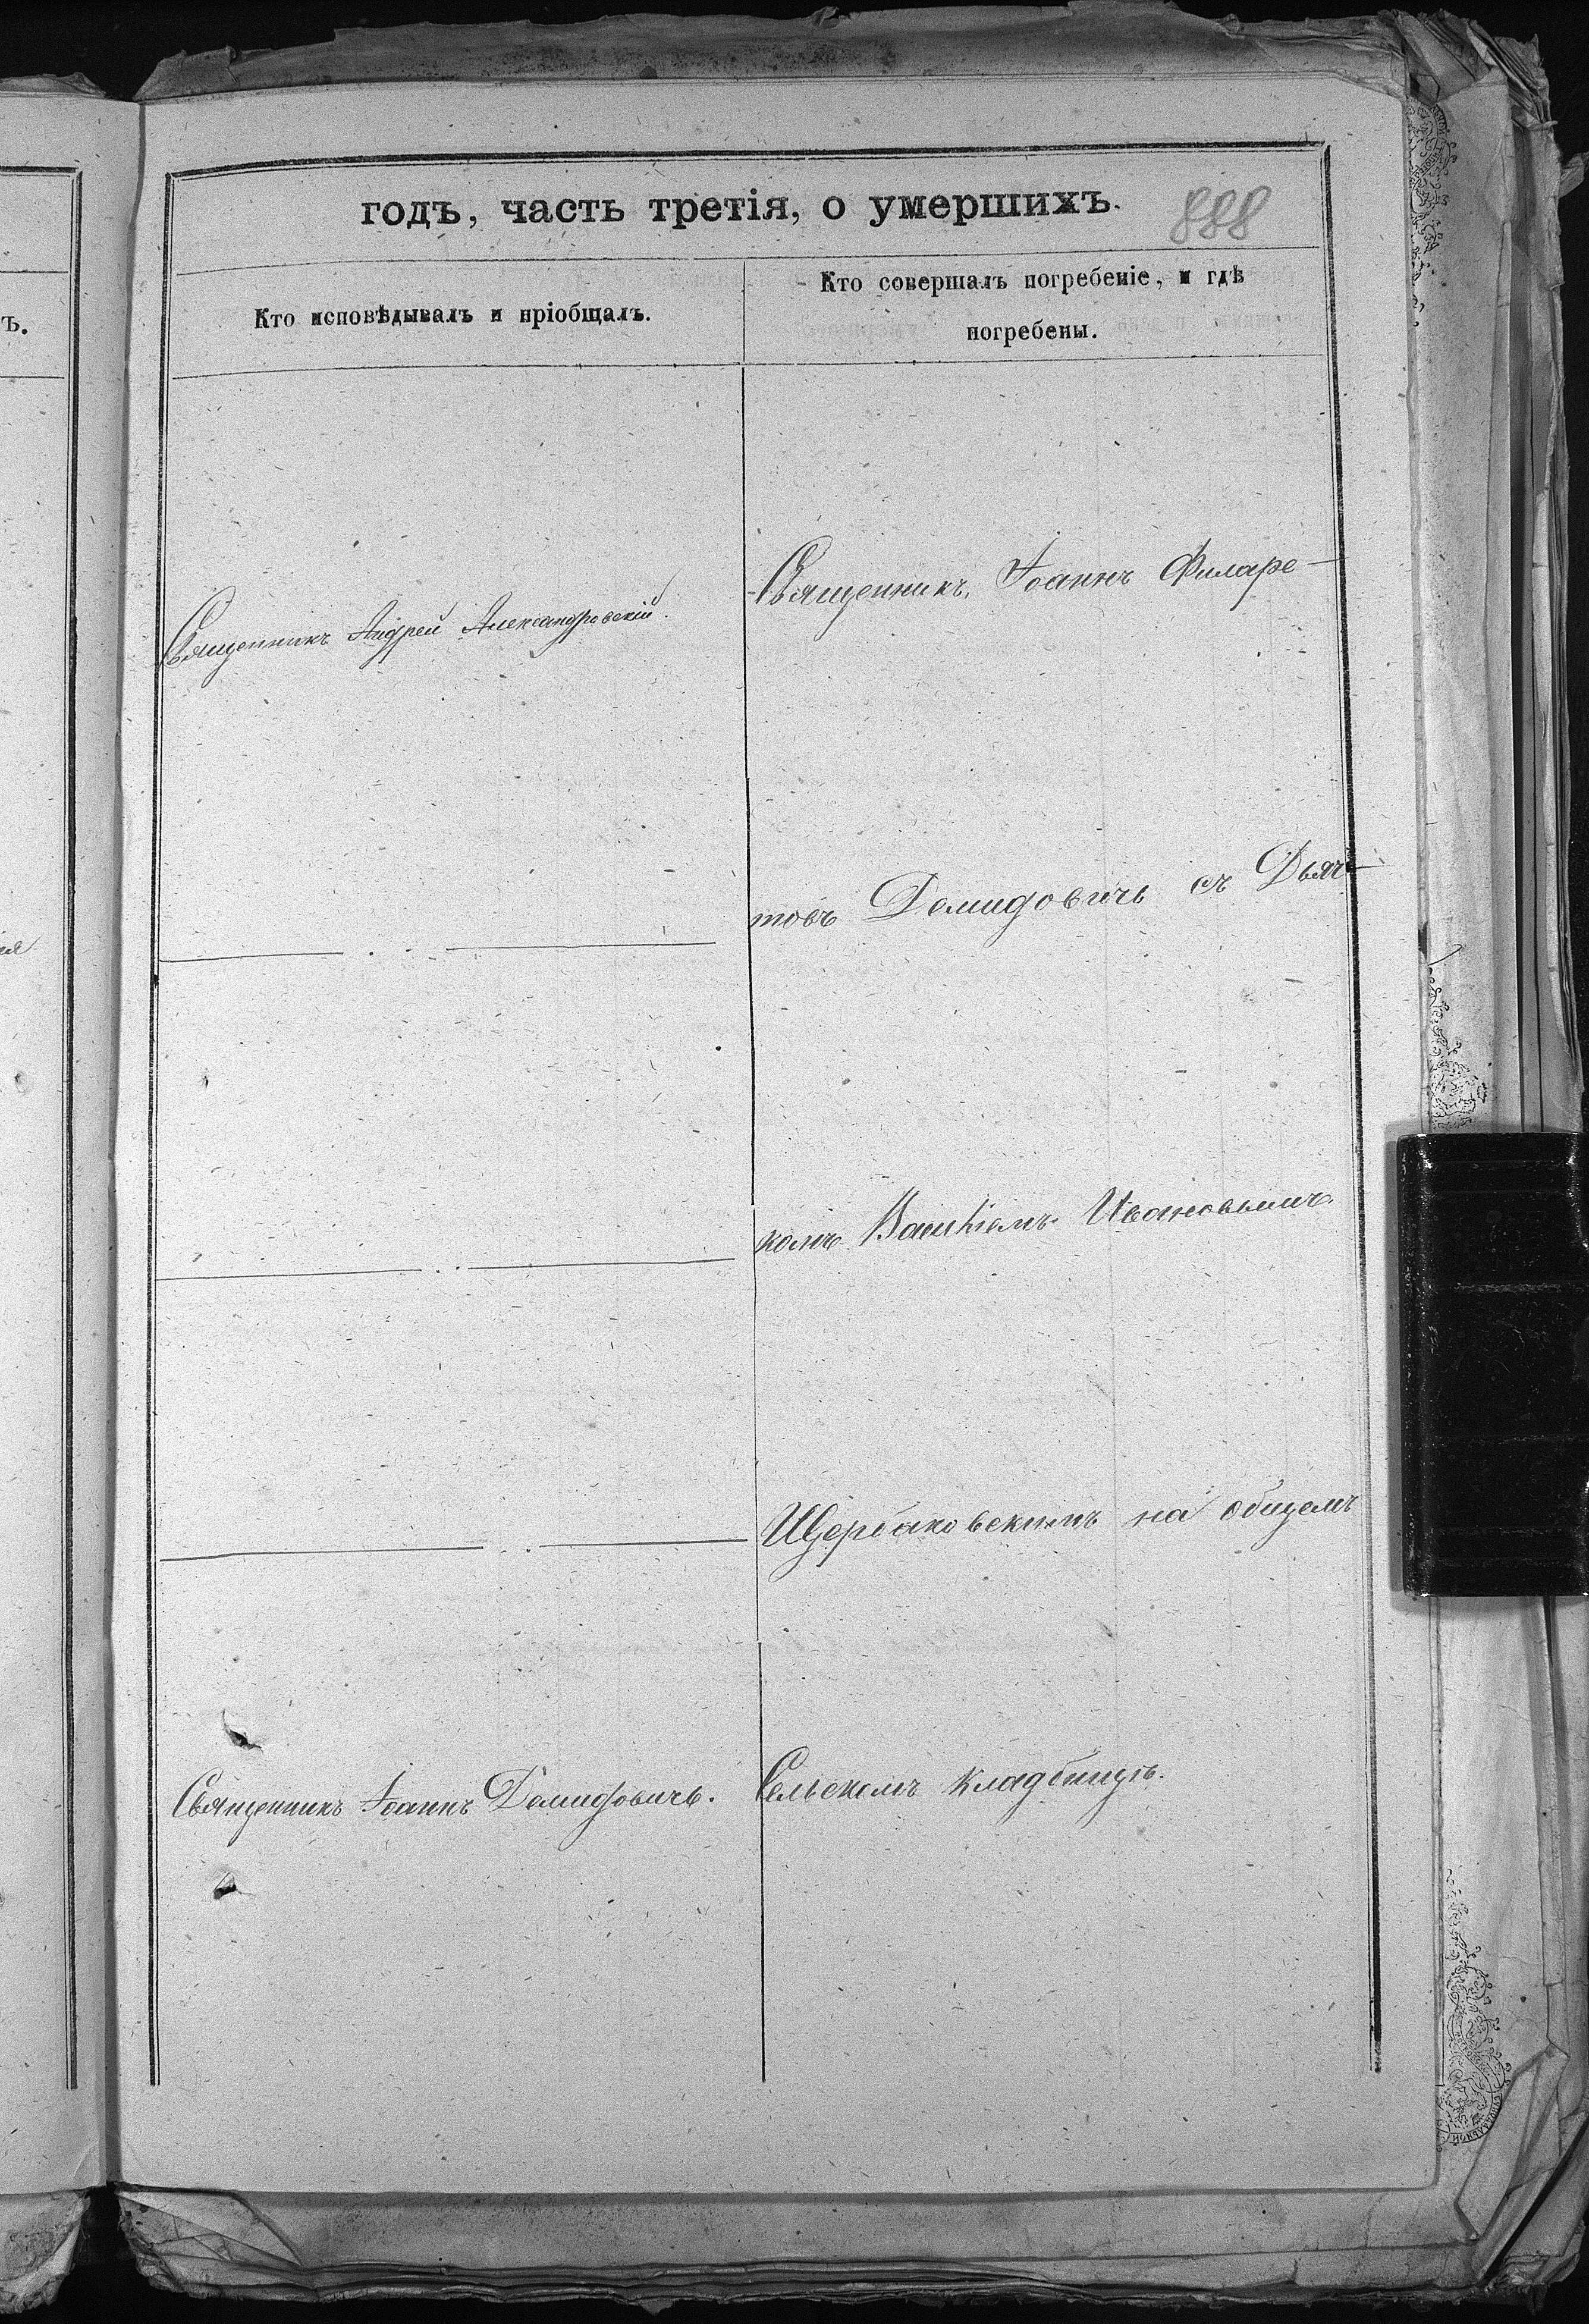 годъ, часть третія, о умершихъ.
888
Кто исповѣдывалъ и пріобщалъ.
Кто совершалъ погребеніе, и гдѣ
погребены.
Священникъ Андрей Александровскій.
Священникъ, Іоаннъ Филаре-
товъ Демидовичъ съ Дьяч-
комъ Ивановымъ
Щербаковскимъ на общемъ
Священникъ Іоаннъ Демидовичъ.
Сельскомъ кладбищѣ.
ъ.